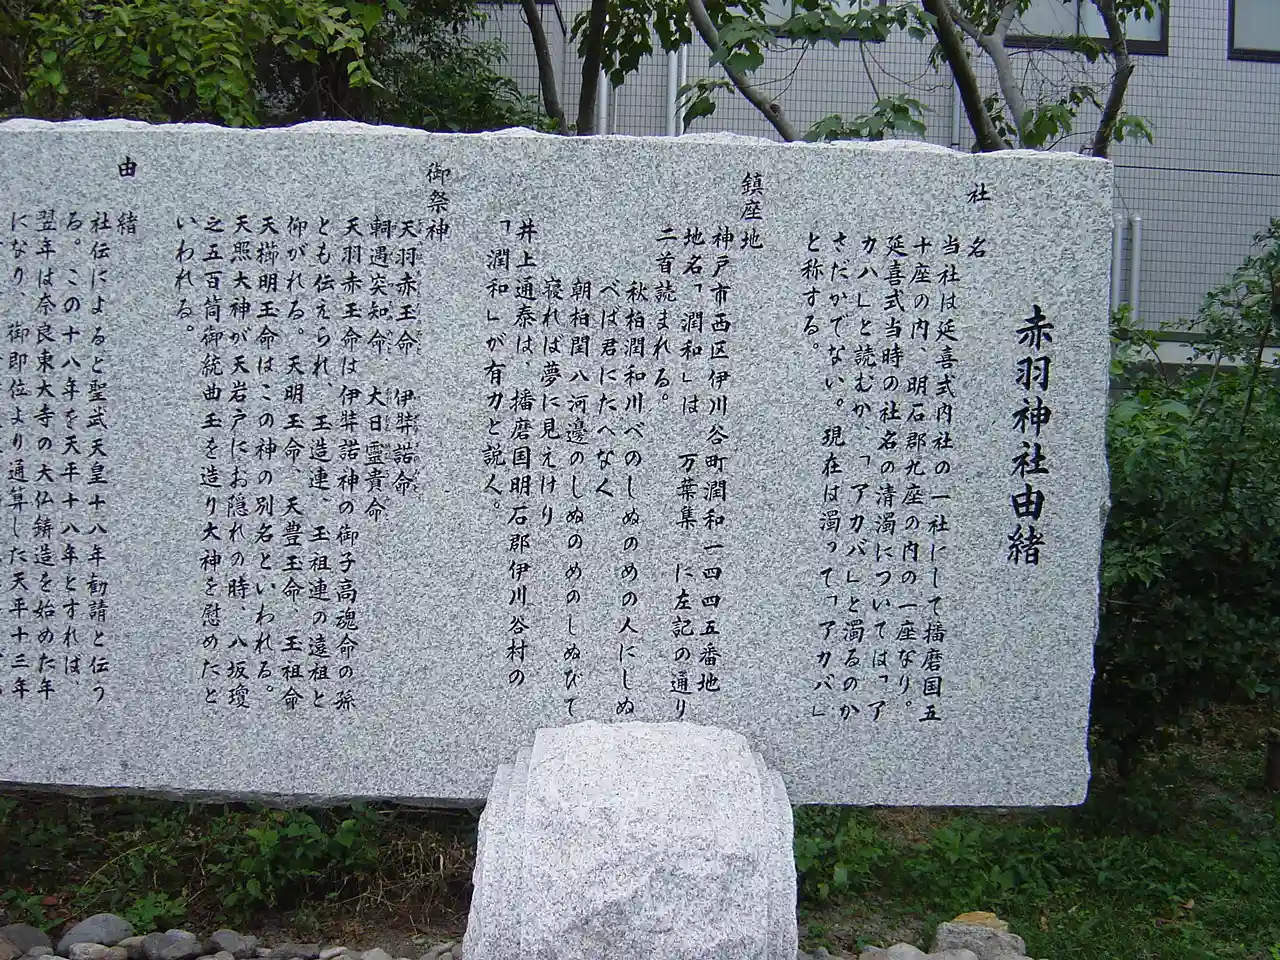 赤羽神社由緒
社名
当社は延喜式内社の一社にして播磨国五
十座の内、明石郡九座の内の一座なり。
延喜式当時の社名の清濁については「ア
カハ」と読むか、「アカバ」と濁るのか
さだかでない。現在は濁って「アカバ」
と称する。
鎮座地
神戸市西区伊川谷町潤和一四四五番地
地名「潤和」は 万葉集 に左記の通り
二首読まれる。
秋柏潤和川べのしぬのめの人にしぬ
べば君にたへなく
朝柏閏八河邊のしぬのめのしぬびて
寝れば夢に見えけり
井上通泰は、播磨国明石郡伊川谷村の
「潤和」が有力と説く。
御祭神
天羽赤玉命 伊弉諾命
軻遇突知命 大日靈貴命
天羽赤玉命は伊弉諾神の御子高魂命の孫
とも伝えられ、玉造連、玉祖連の遠祖と
仰がれる。天明玉命、天豊玉命、玉祖命
天櫛明玉命はこの神の別名といわれる。
天照大神が天岩戸にお隠れの時、八坂瓊
之五百筒御統曲玉を造り大神を慰めたと
いわれる。
由緒
社伝によると聖武天皇十八年勧請と伝う
る。この十八年を天平十八年とすれば、
翌年は奈良東大寺の大仏鋳造を始めた年
になり、御即位より通算した天平十三年